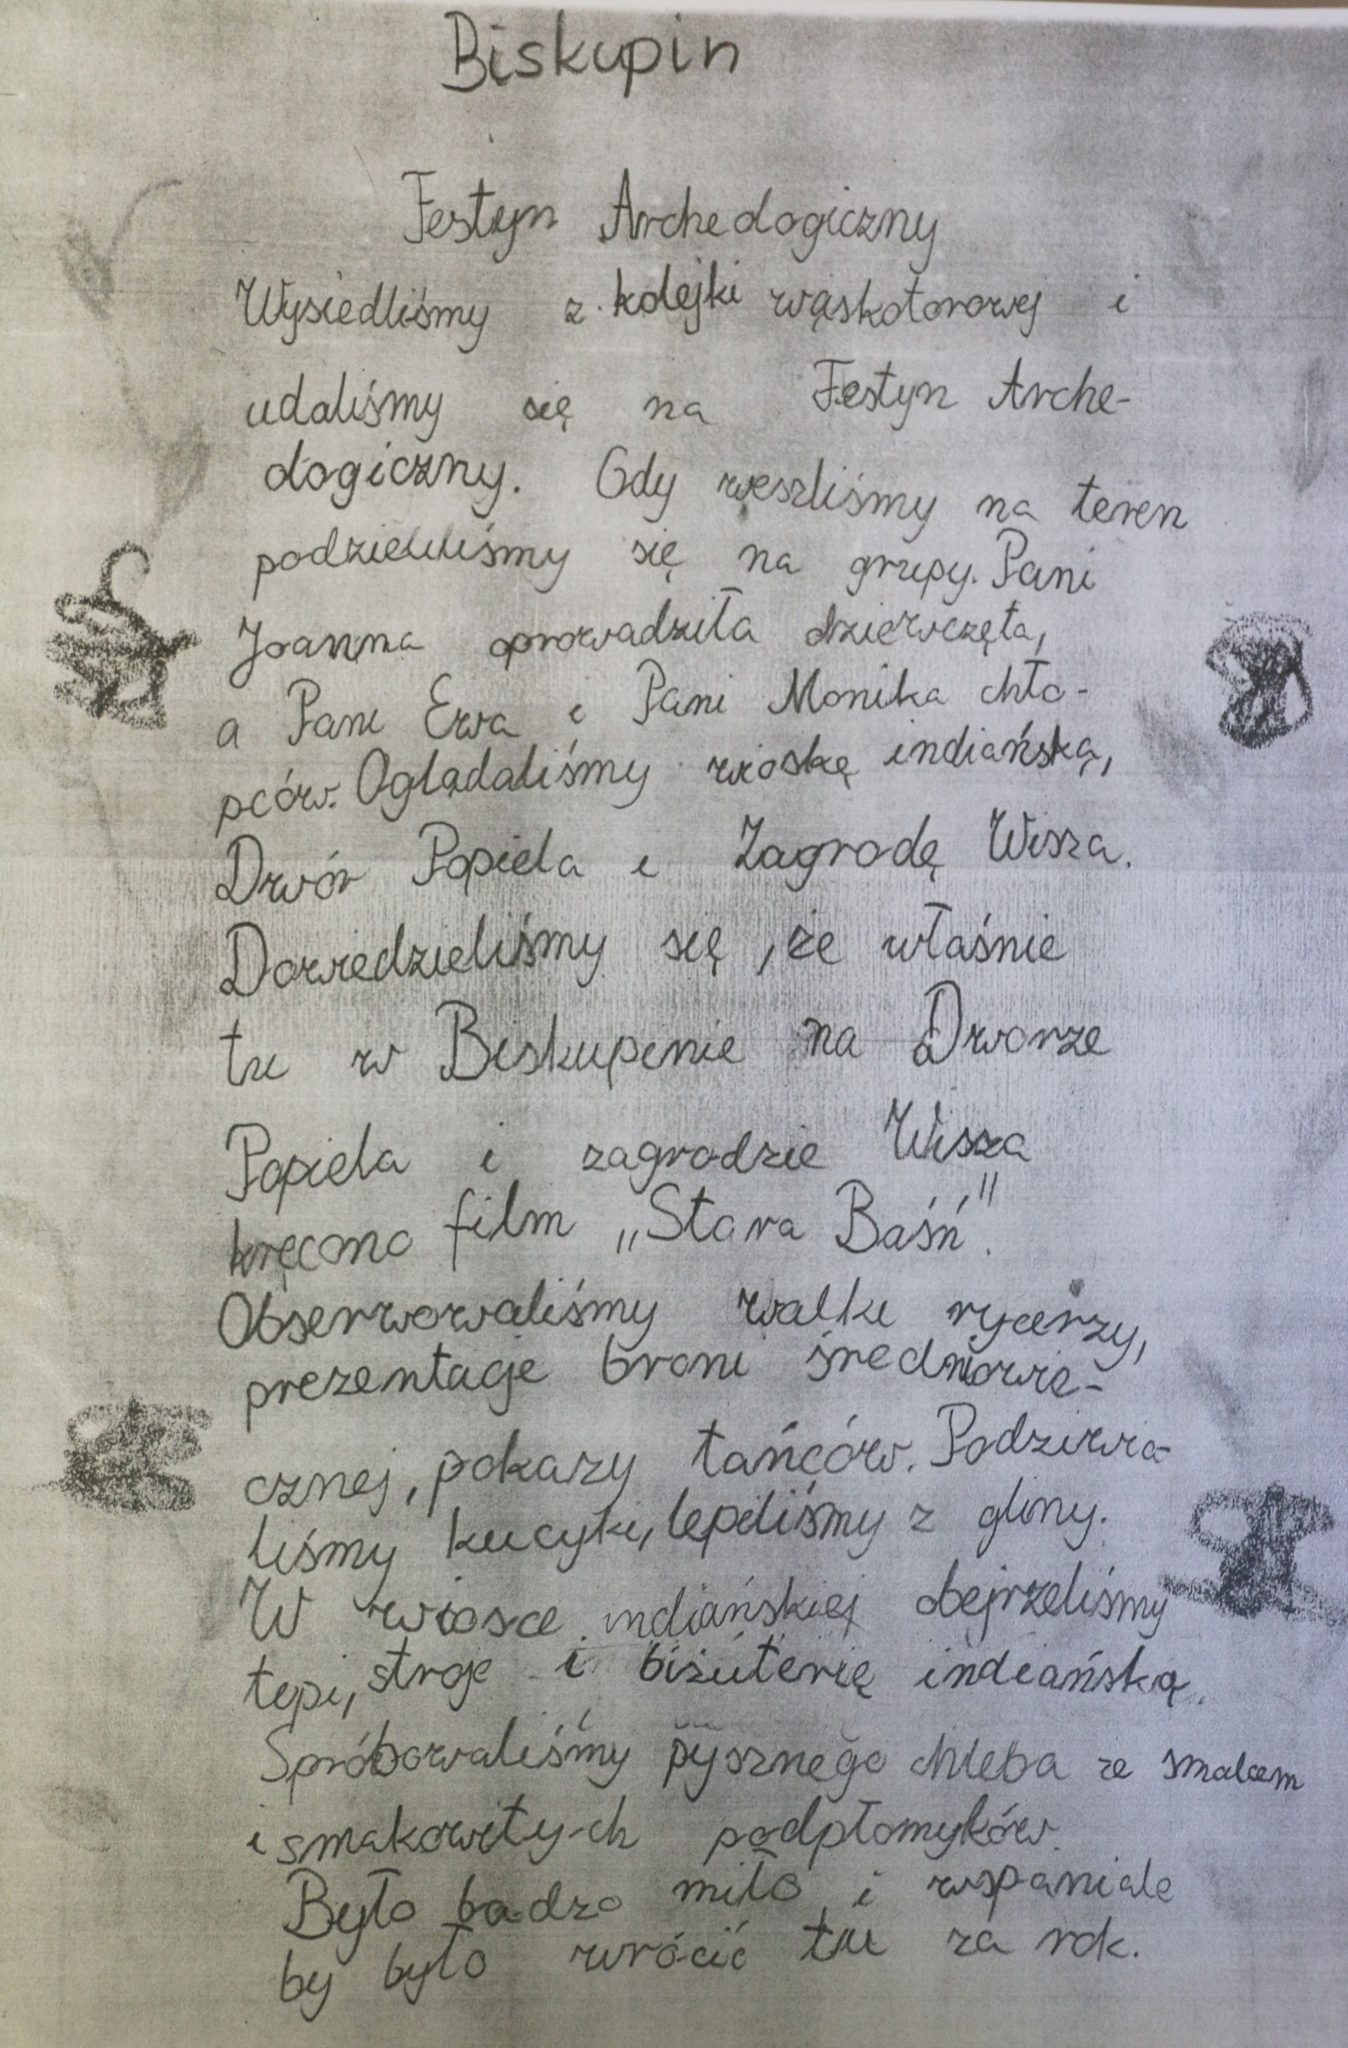 Biskupin
Festyn Archeologiczny
Wysiedliśmy z kolejki wąskotorowej i
udaliśmy się na Festyn Arche-
ologiczny. Gdy weszliśmy na teren
podzieliliśmy się na grupy. Pani
Joanna oprowadziła dziewczęta,
a Pani Ewa i Pani Monika chło-
pców. Oglądaliśmy wioskę indiańską,
Dwór Popiela i Zagrodę Wisza.
Dowiedzieliśmy się, że właśnie
tu w Biskupinie na Dworze
Popiela i zagrodzie Wisza
kręcono film „Stara Baśń".
Obserwowaliśmy walki rycerzy,
prezentacje broni średniowie-
cznej, pokazy tańców. Podziwia-
liśmy kucyki, lepiliśmy z gliny.
W wiosce indiańskiej obejrzeliśmy
tipi, stroje i biżuterię indiańską.
Spróbowaliśmy pysznego chleba ze smalcem
i smakowity-ch podpłomyków.
Było badzo miło i wspaniale
by było wrócić tu za rok.